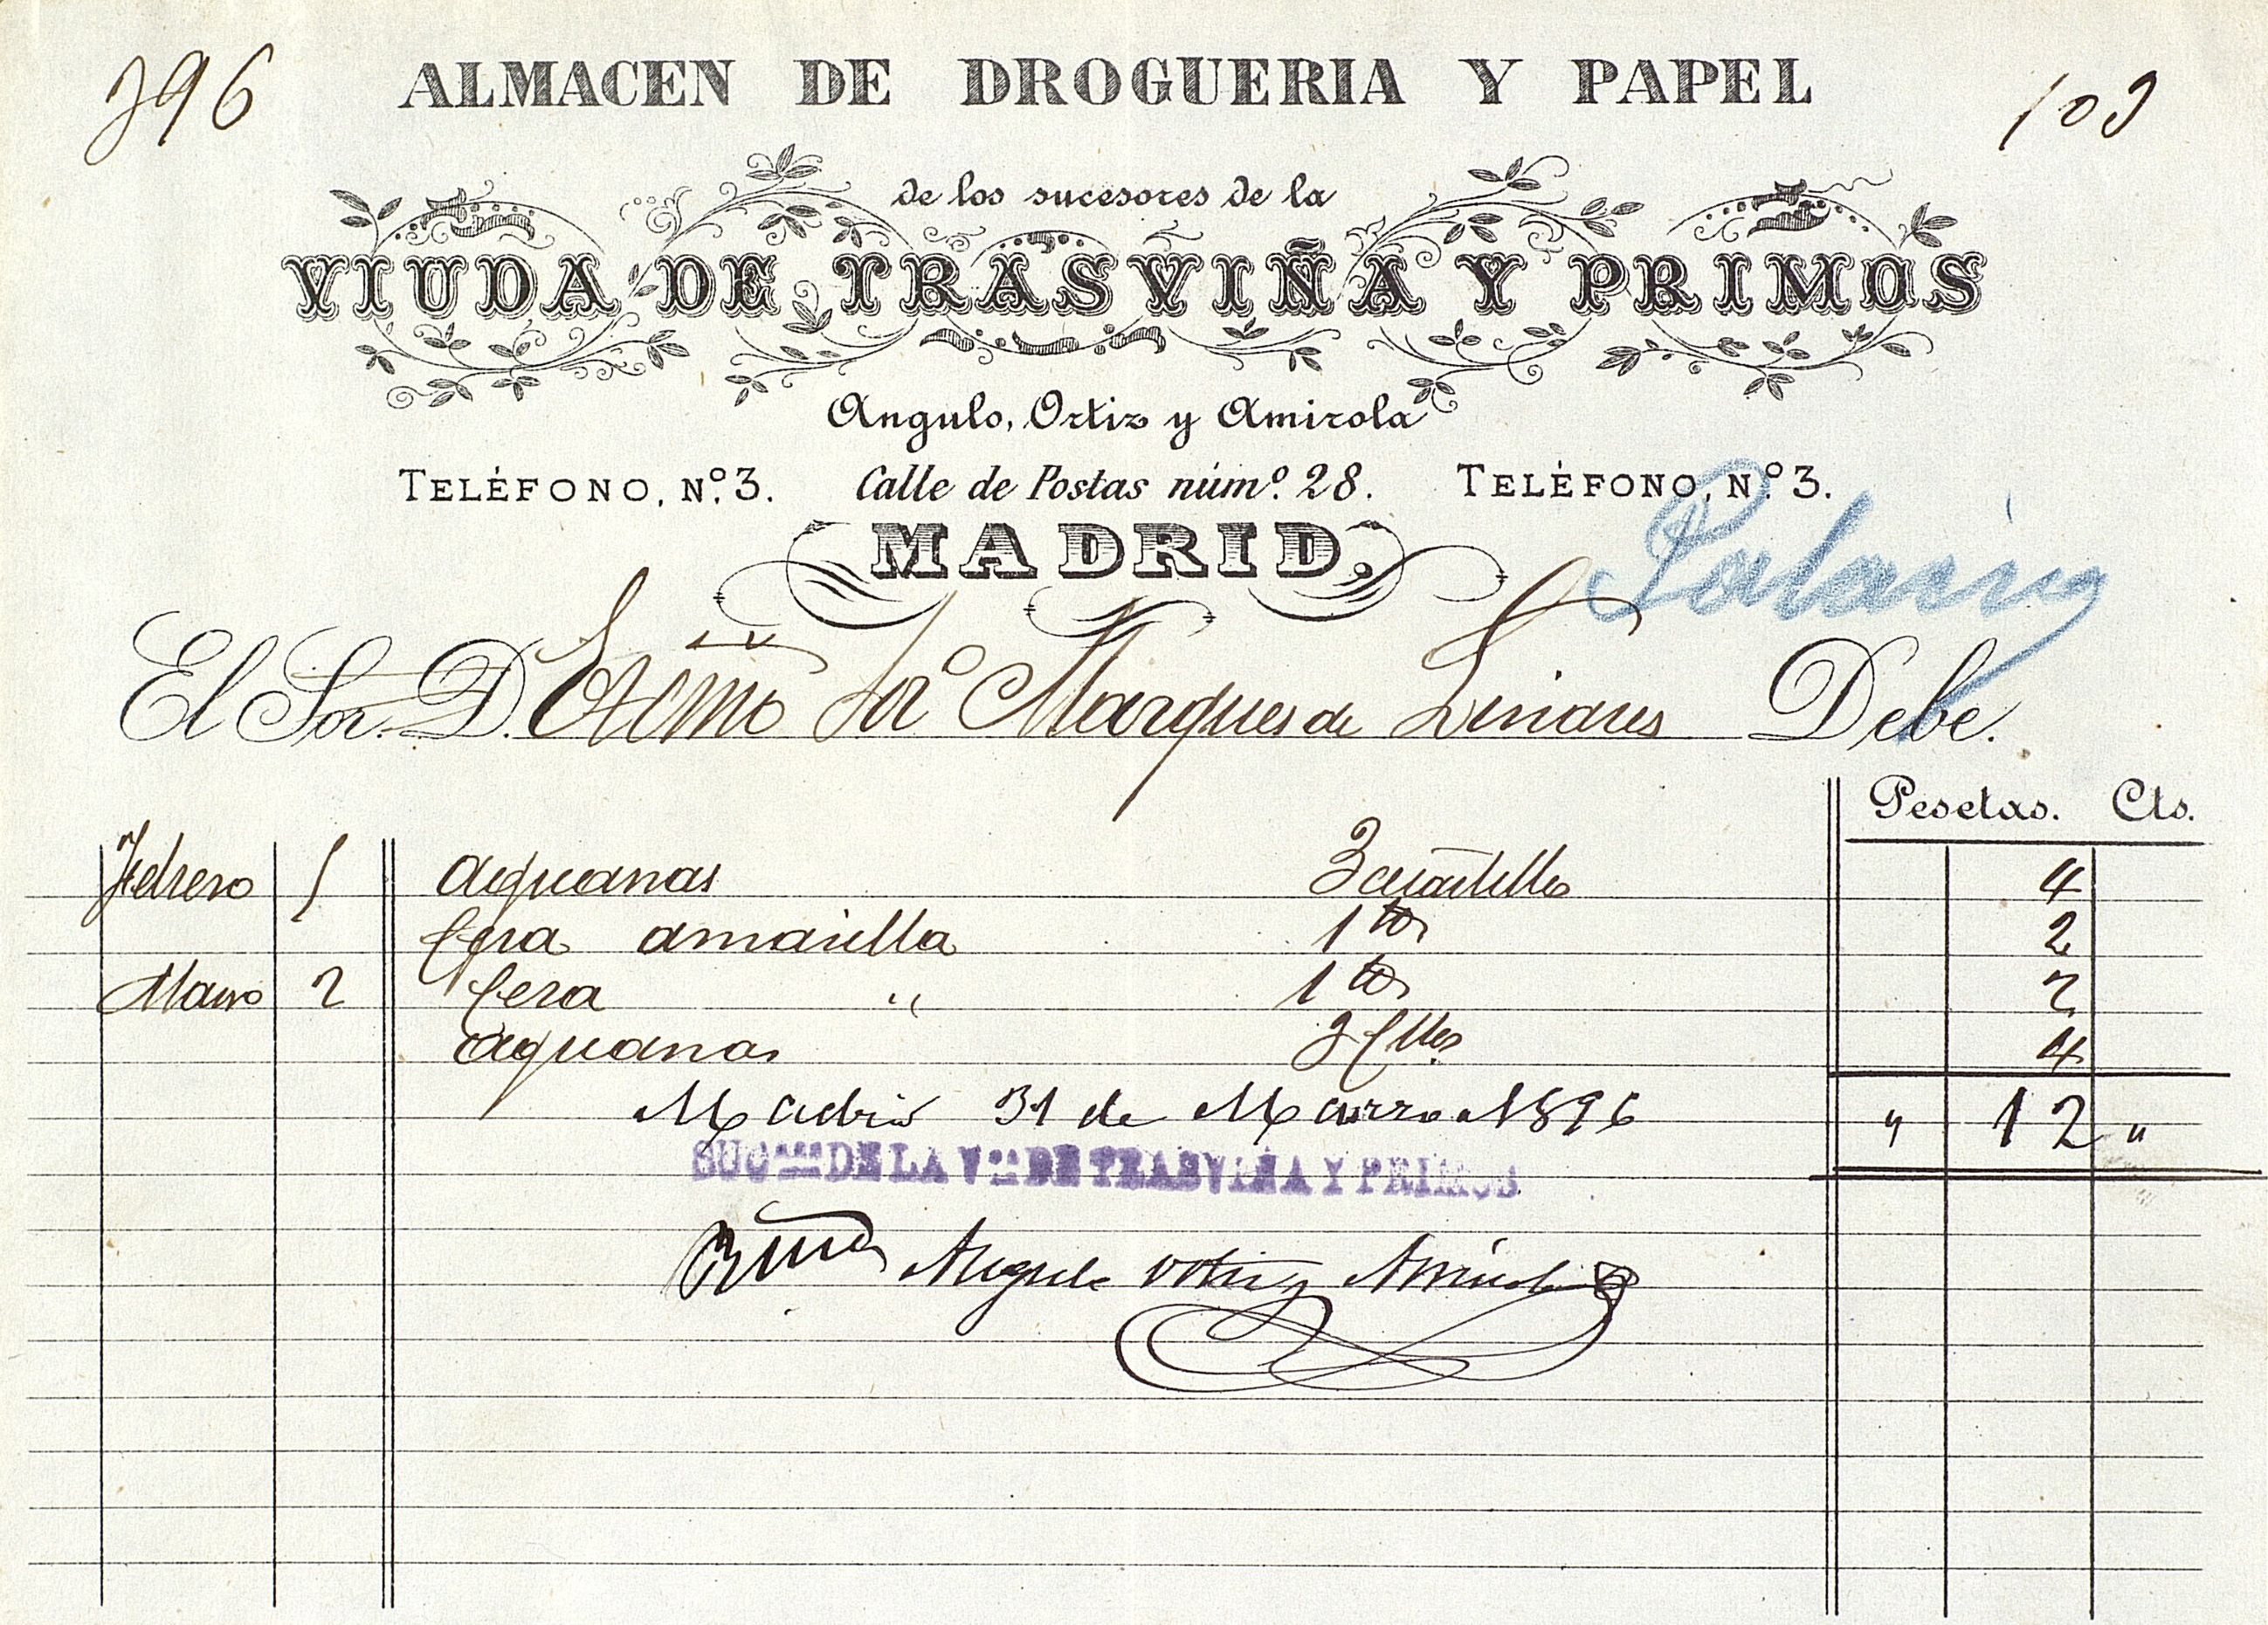 396 ALMACEN DE DROGUERIA Y PAPEL 103
de los sucesores de la
VIUDA DE TRASVIÑA Y PRIMOS
Angulo, Ortiz y Amirola
TELÉFONO, Nº. 3. Calle de Postas númº. 28. TELÉFONO, Nº. 3.
MADRID.
El Sor. D. Excmo Sor Marques de Linares Debe.
Pesetas. Cts.
Febrero 1 aguarras 3 cuartillos 4
Cera amarilla 1 2
Marzo 2 Cera " 1 2
aguarras 3 4
Madrid 31 de Marzo 1896 " 12 "
SUC DE LA V DE TRASVIÑA Y PRIMOS
Angulo Ortiz y Amirola